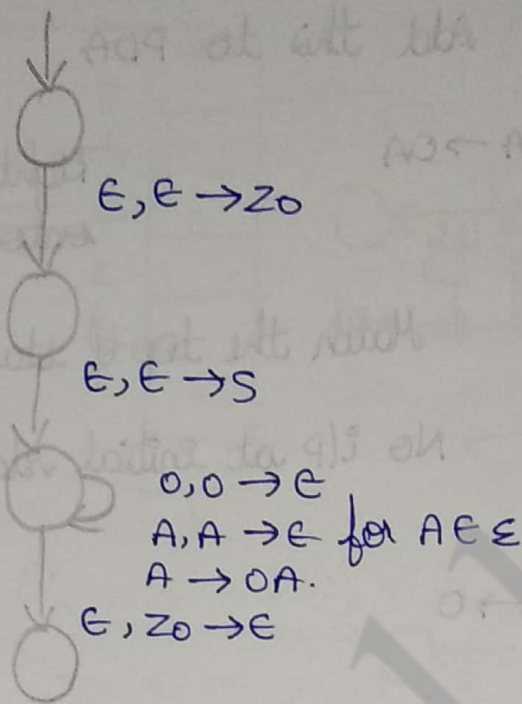 ϵ, ϵ → Z0
ϵ, ϵ → S
0, 0 → ϵ
A, A → ϵ for A ∈ Σ
A → 0A.
ϵ, Z0 → ϵ